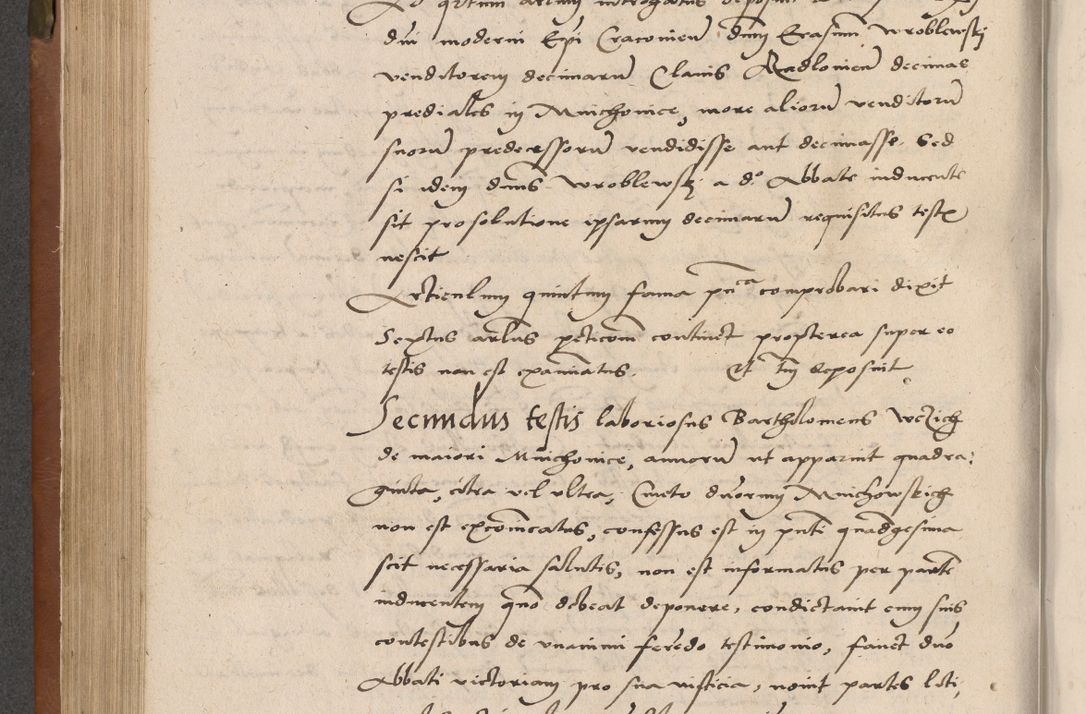 Ad qrtum arlum interogatus deposuit
dni moderni Epi Cracovien̄ dnm̄ Erasmū Wroblewskj
venditorem decimarū Clavis Radlovien̄ decimas
prediales in Mnichovice, more aliorū venditorū
suorū predecessorū vendidisse aut decimasse. Sed
si idem dn̄us Wroblewskj a do Abbate inducente
sit pro solutione ipsarum decimarū requisitus testis
nescit
Articulum quintum fama pn̄ta comprobari dixit
Septus arlus peticōem continet propterea super eo
testis non est exami̅atus. Et tm̄ deposuit.
Secundus testis laboriosus Bartholomeus Wczich
de maiori Mnichovice, annorū ut apparuit quadra:
ginta, citra vel ultra, Cmeto dnorum Mnichowskich
non est excōicatus, confessus est in pn̄te quadgesima
scit necessaria salutis, non est informatus per partē
inducentem quo debeat deponere, condictavit enim suis
contestibus de unanimi feredo testimonio, favet dno
Abbati victoriam pro sua iusticia, novit partes liti,